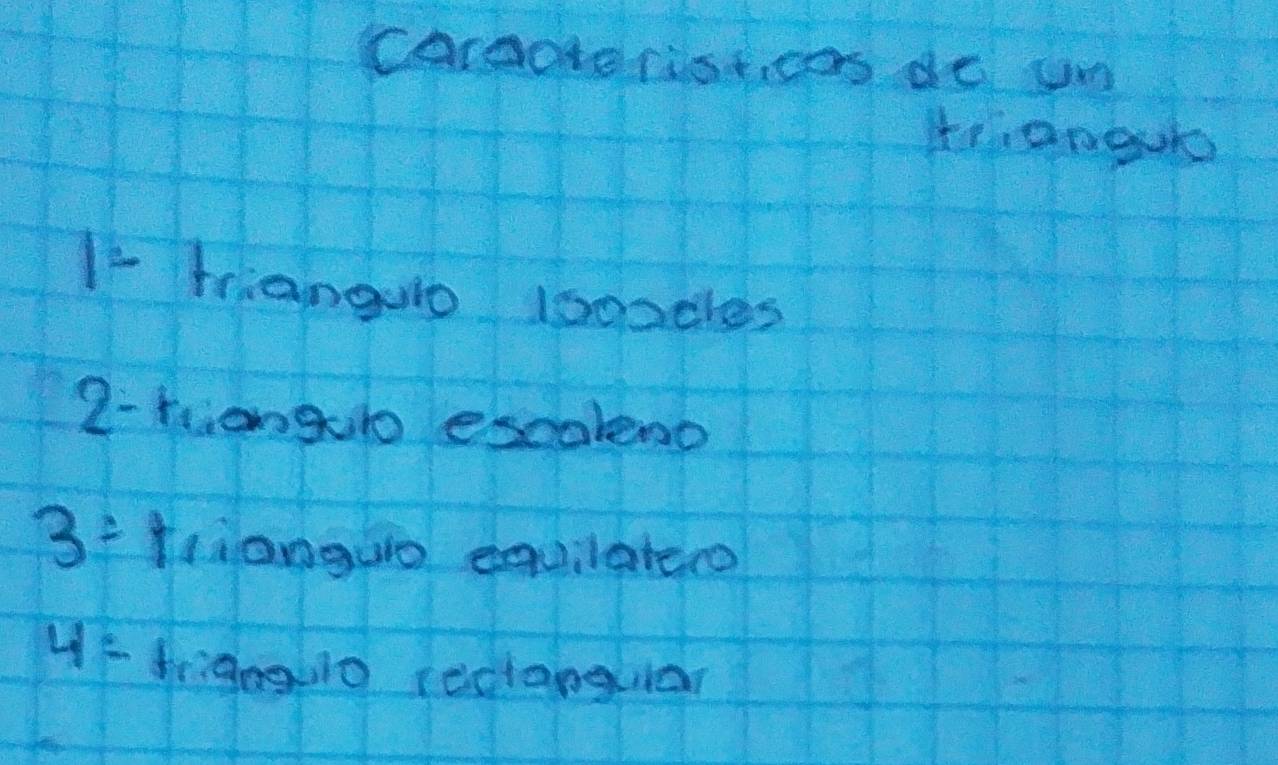 Caracteristicas de un
triangulo
1- triangulo isosceles
2- triangulo escaleno
3- triangulo equilatero
4- triangulo rectangular